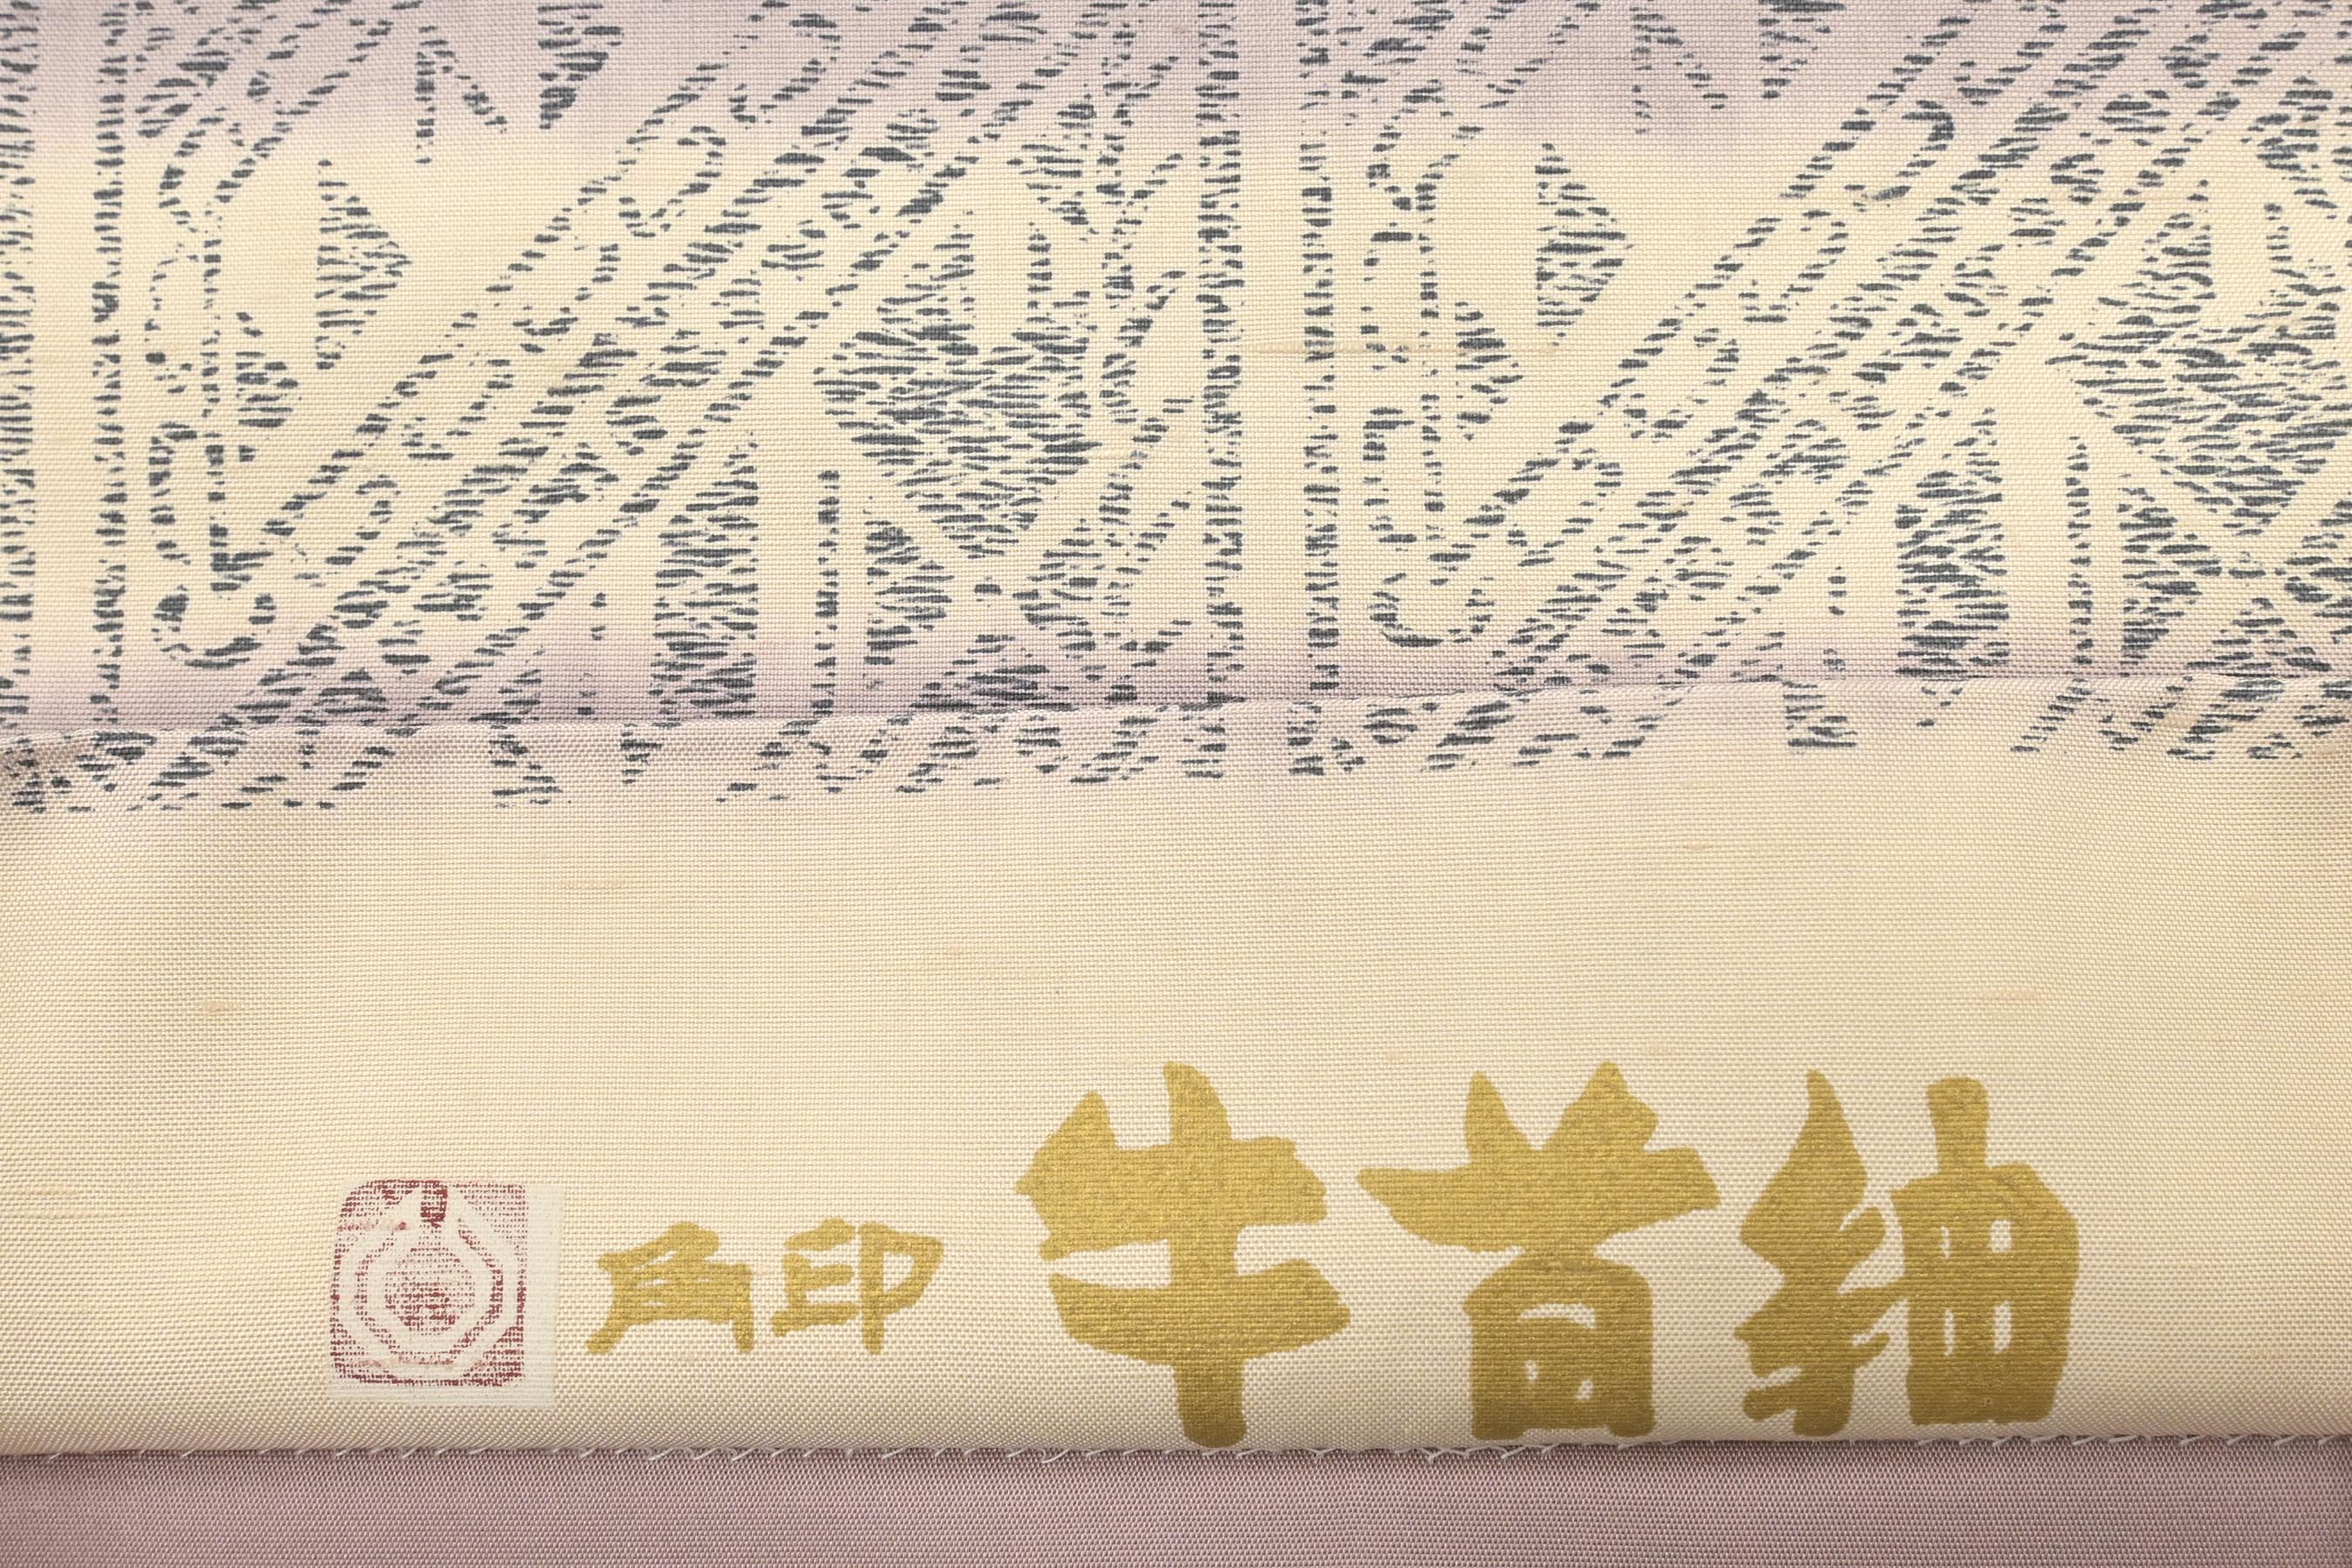 角印 牛首紬